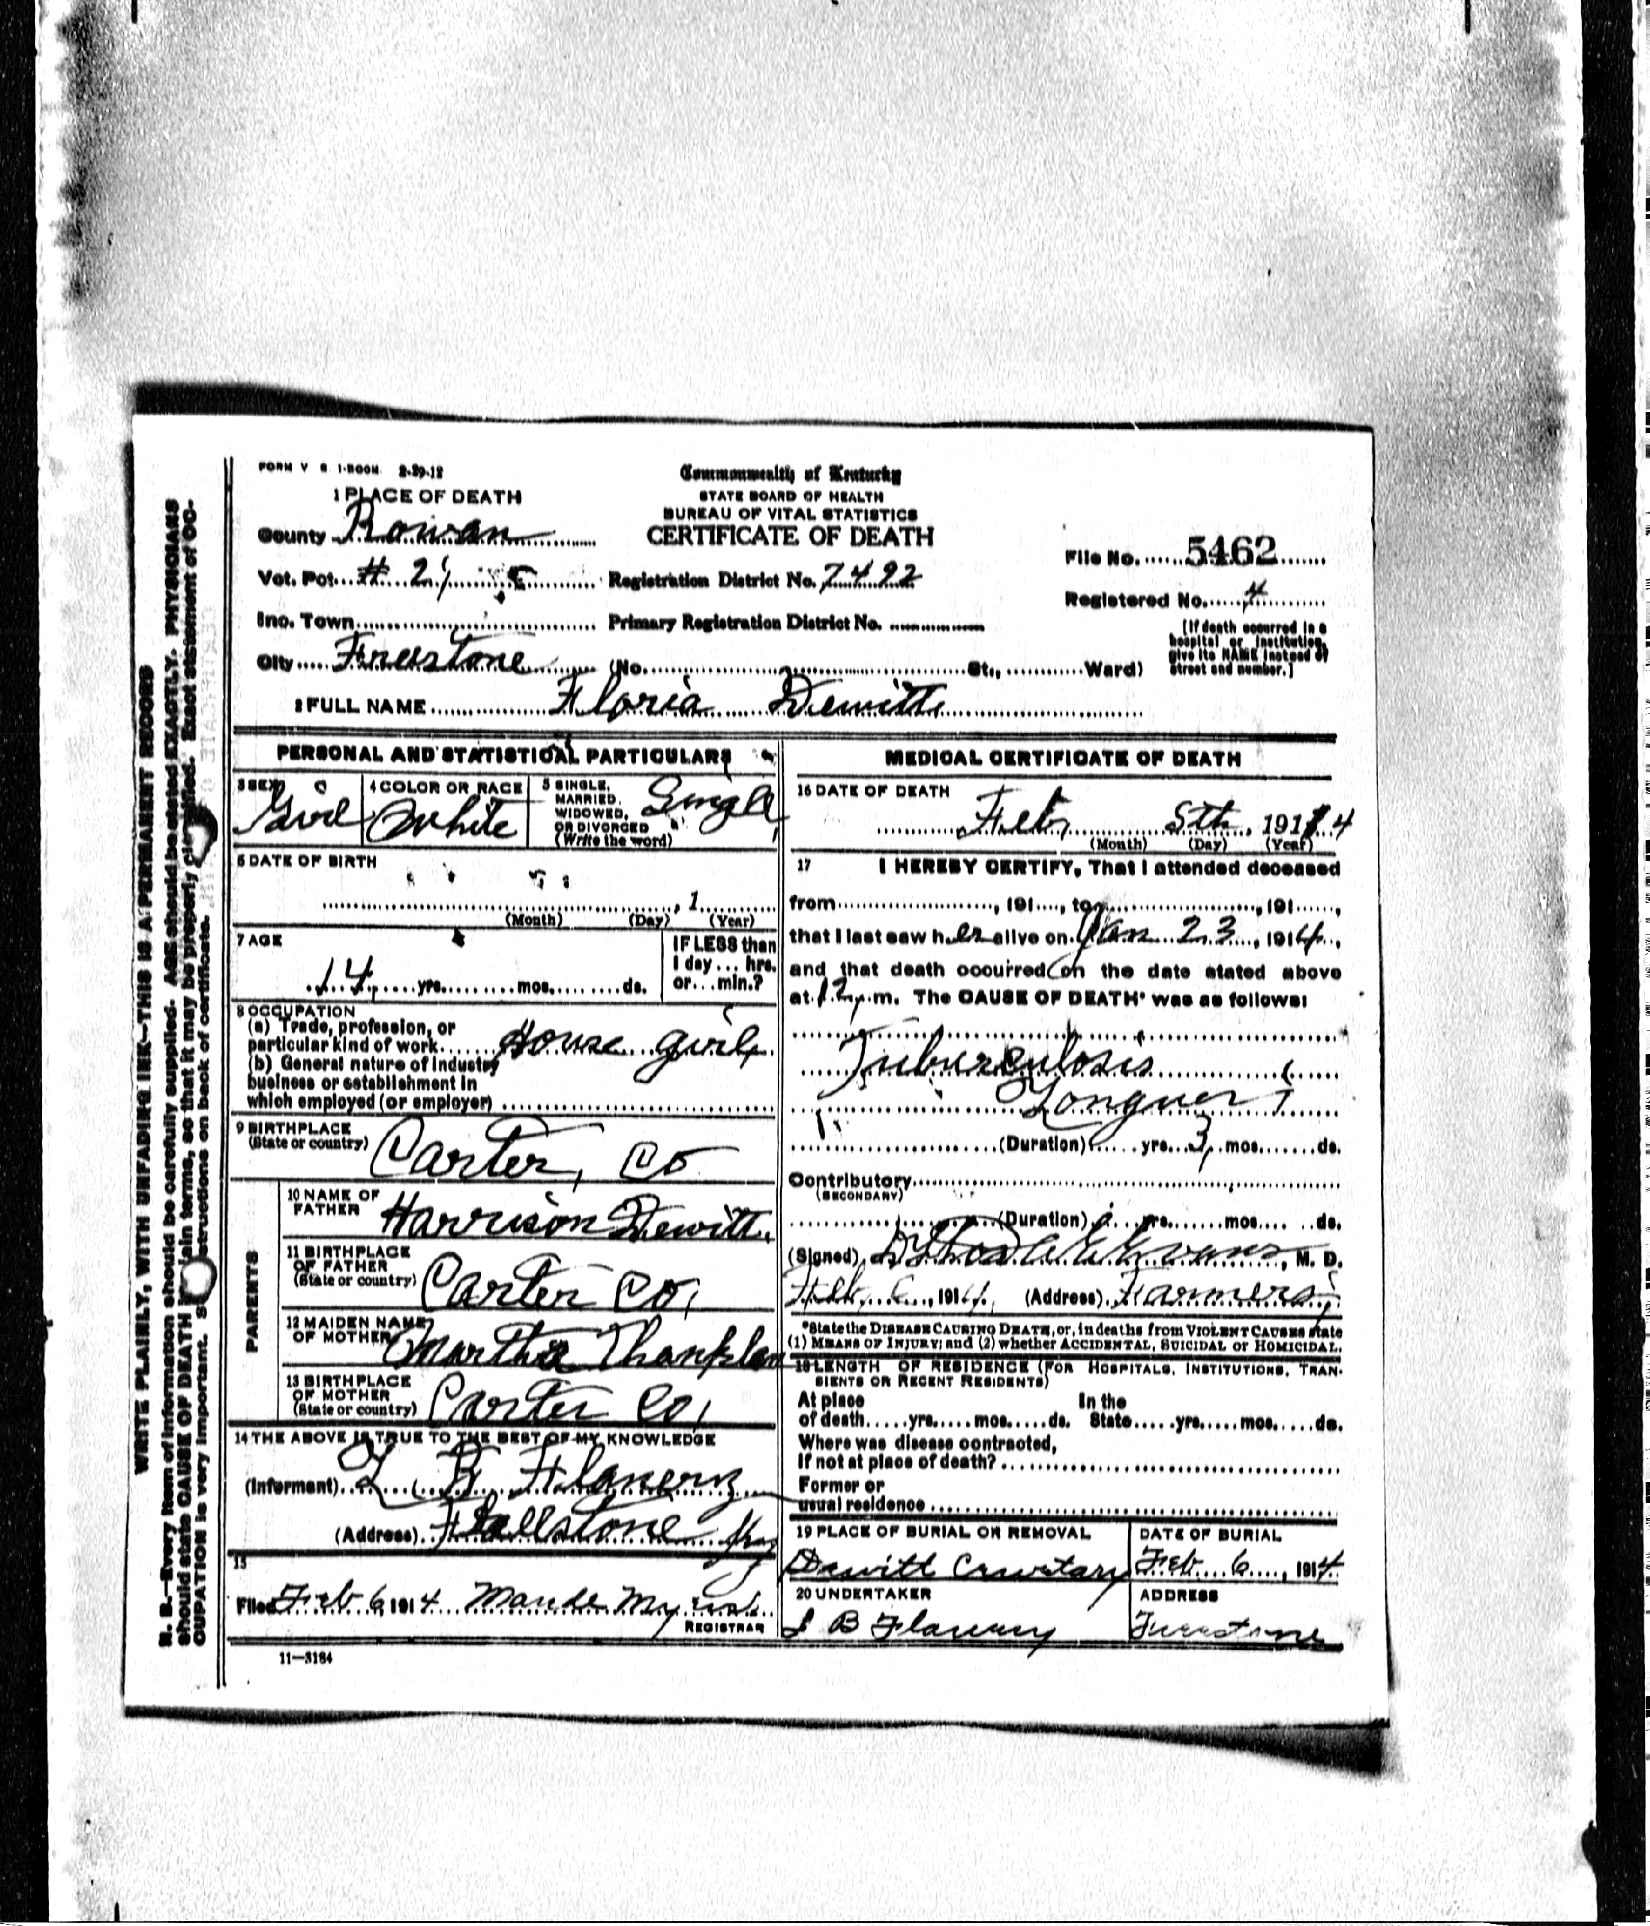 FORM V. S. 1-500M 2-29-12
Commonwealth of Kentucky
STATE BOARD OF HEALTH
BUREAU OF VITAL STATISTICS
CERTIFICATE OF DEATH
1 PLACE OF DEATH
County Rowan
Vot. Pct. # 2
Registration District No. 7492
File No. 5462
Registered No. 4
Inc. Town
Primary Registration District No.
City Freestone (No. St., Ward)
[If death occurred in a hospital or institution, give its NAME instead of street and number.]
2 FULL NAME Floria Dewitt
PERSONAL AND STATISTICAL PARTICULARS
3 SEX Girl
4 COLOR OR RACE White
5 SINGLE, MARRIED, WIDOWED, OR DIVORCED (Write the word) Single
6 DATE OF BIRTH
, 1
(Month) (Day) (Year)
7 AGE
14 yrs. mos. ds.
IF LESS than 1 day... hrs. or... min.?
8 OCCUPATION
(a) Trade, profession, or particular kind of work House girl
(b) General nature of Industry business or establishment in which employed (or employer)
9 BIRTHPLACE (State or country) Carter, Co
PARENTS
10 NAME OF FATHER Harrison Dewitt.
11 BIRTHPLACE OF FATHER (State or country) Carter Co,
12 MAIDEN NAME OF MOTHER Martha
13 BIRTHPLACE OF MOTHER (State or country) Carter Co,
14 THE ABOVE IS TRUE TO THE BEST OF MY KNOWLEDGE
(Informant) B Flanery
(Address) Ky
15
Filed Feb 6, 1914 Maude
REGISTRAR
11-3184
MEDICAL CERTIFICATE OF DEATH
16 DATE OF DEATH
Feb 5th, 1914
(Month) (Day) (Year)
17 I HEREBY CERTIFY, That I attended deceased
from , 191 , to , 191 ,
that I last saw her alive on Jan 23, 1914,
and that death occurred on the date stated above
at 12 m. The CAUSE OF DEATH* was as follows:
Tuberculosis
(Duration) yrs. 3 mos. ds.
Contributory
(SECONDARY)
(Duration) yrs. mos. ds.
(Signed) Evans, M. D.
Feb 6, 1914, (Address) Farmers,
*State the DISEASE CAUSING DEATH, or, in deaths from VIOLENT CAUSES state
(1) MEANS OF INJURY; and (2) whether ACCIDENTAL, SUICIDAL or HOMICIDAL.
18 LENGTH OF RESIDENCE (FOR HOSPITALS, INSTITUTIONS, TRANSIENTS OR RECENT RESIDENTS)
At place of death yrs. mos. ds. In the State yrs. mos. ds.
Where was disease contracted,
If not at place of death?
Former or
usual residence
19 PLACE OF BURIAL OR REMOVAL
Dewitt
DATE OF BURIAL
Feb 6, 1914
20 UNDERTAKER
B Flanery
ADDRESS
Freestone
WRITE PLAINLY, WITH UNFADING INK—THIS IS A PERMANENT RECORD
N. B.—Every item of information should be carefully supplied. AGE should be stated EXACTLY. PHYSICIANS
should state CAUSE OF DEATH in plain terms, so that it may be properly classified. Exact statement of OC-
CUPATION is very important. See instructions on back of certificate.